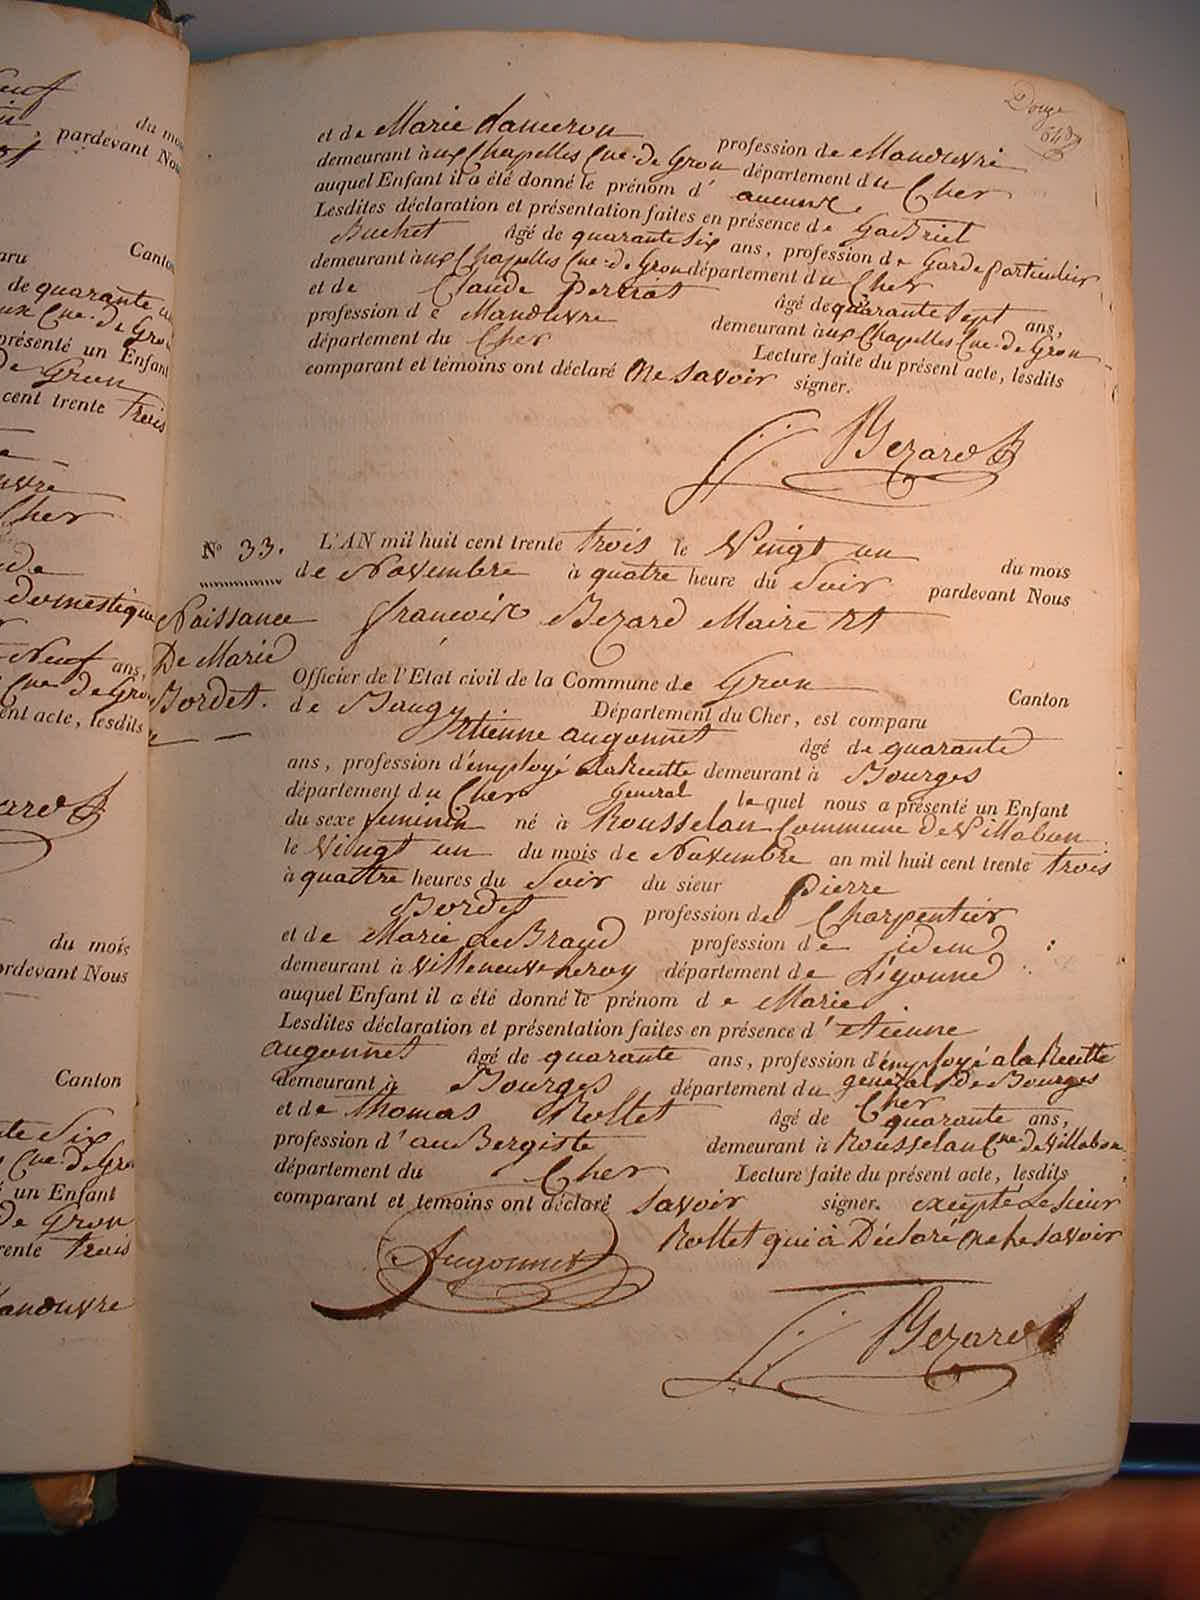 Douze
et de Marie dameron profession de Manœuvre
demeurant à aux Chapelles Cne de Gron département du Cher
auquel Enfant il a été donné le prénom d'
Lesdites déclaration et présentation faites en présence de Gabriel
Buchet âgé de quarante six ans, profession de Garde particulier
demeurant à aux Chapelles Cne de Gron département du Cher
et de Claude Perriot âgé de quarante sept ans,
profession de Manœuvre demeurant à aux Chapelles Cne de Gron
département du Cher Lecture faite du présent acte, lesdits
comparant et témoins ont déclaré Ne Savoir signer.
Bezard
N° 33. L'AN mil huit cent trente trois le Vingt un du mois
de Novembre à quatre heure du Soir pardevant Nous
Naissance
De Marie
Bordet.
francoix Bezard Maire Et
Officier de l'Etat civil de la Commune de Gron Canton
de Baugy Département du Cher, est comparu
Etienne augonnet âgé de quarante
ans, profession d'employé a la Recette demeurant à Bourges
département du Cher général lequel nous a présenté un Enfant
du sexe feminin né à Rousselan Commune de Villabon
le Vingt un du mois de Novembre an mil huit cent trente trois
à quattre heures du Soir du sieur pierre
Bordet profession de Charpentier
et de Marie de Braud profession de idem
demeurant à Villeneuve le roy département de L'iyonne
auquel Enfant il a été donné le prénom de Marie
Lesdites déclaration et présentation faites en présence d'etienne
augonnet âgé de quarante ans, profession d'employé a la Recette
demeurant à Bourges département du général de Bourges
Cher
et de thomas Rollet âgé de quarante ans,
profession d'auBergiste demeurant à Rousselan Cne de Villabon
département du Cher Lecture faite du présent acte, lesdits
comparant et temoins ont déclaré savoir signer. excepté Le sieur
Rollet qui à Déclaré ne le savoir
Augonnet
Bezard
du mois
pardevant Nous
Canton
de quarante
présenté un Enfant
de Gron
cent trente trois
Cher
domestique
Neuf ans,
Cne de Gron
présent acte, lesdits
du mois
pardevant Nous
Canton
Cne de Gron
un Enfant
de Gron
trente trois
Manœuvre